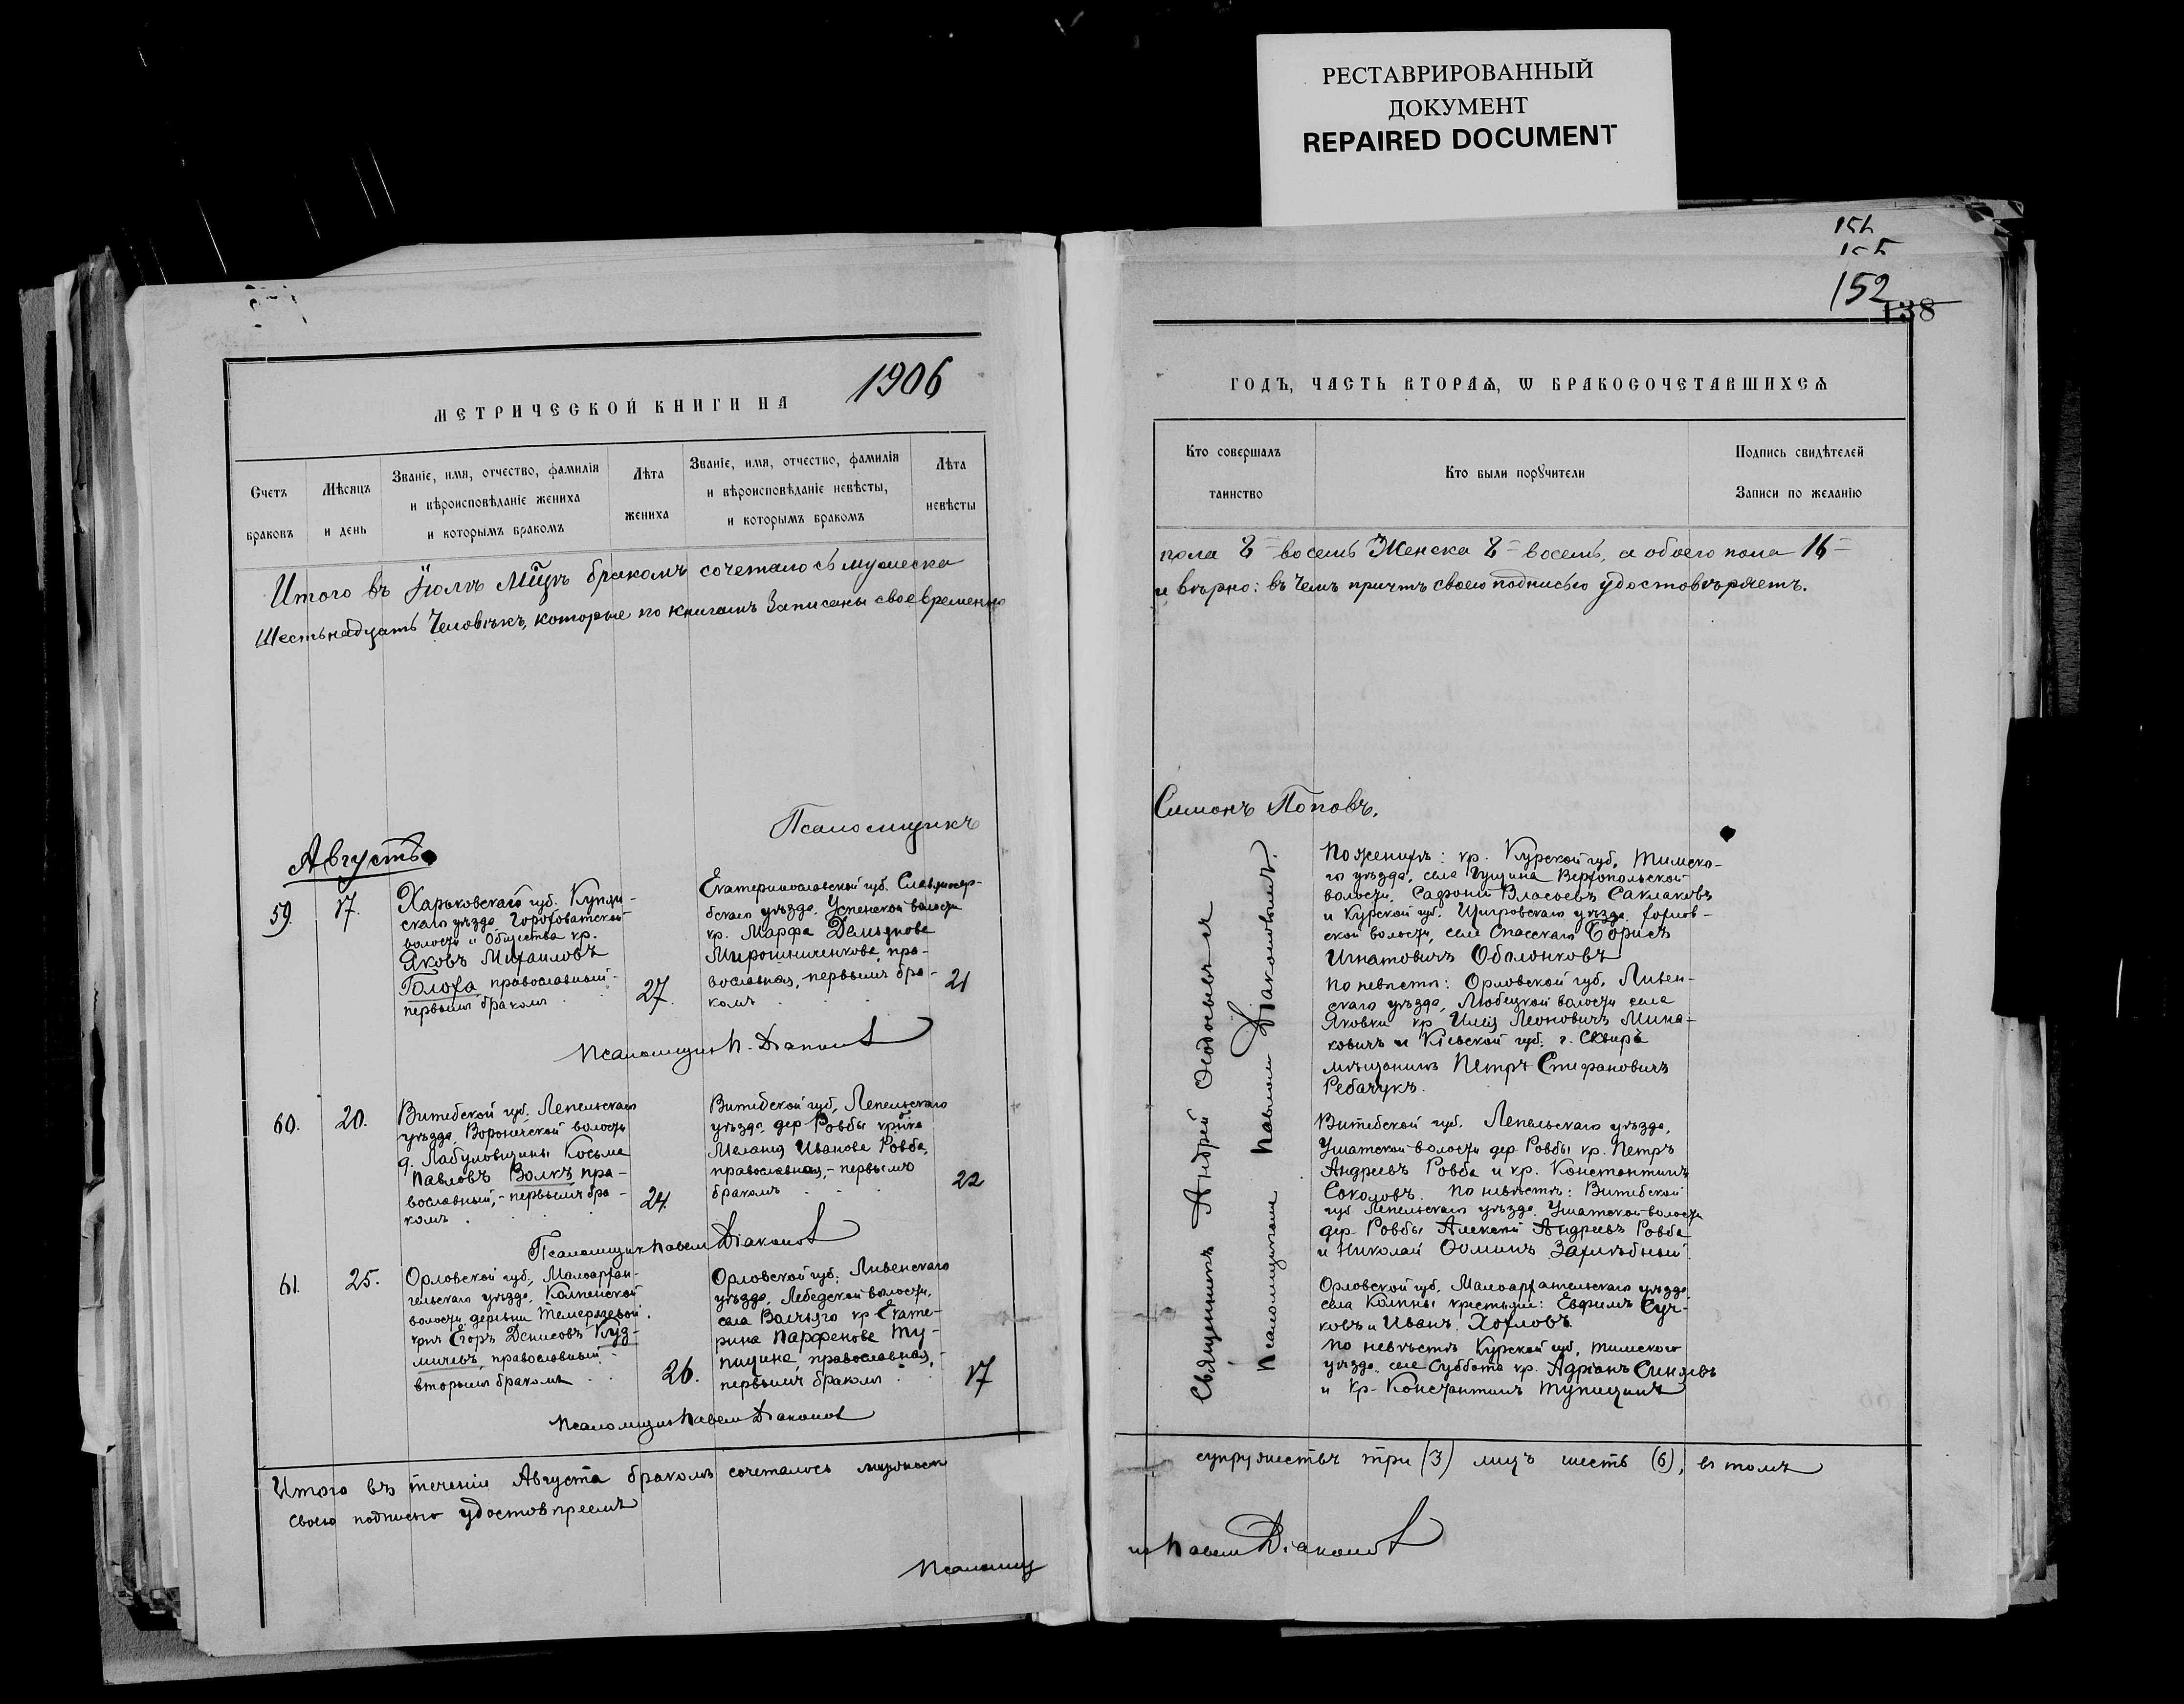 РЕСТАВРИРОВАННЫЙ
ДОКУМЕНТ
REPAIRED DOCUMENT
152
138
МЕТРИЧЕСКОЙ КНИГИ НА 1906
Счетъ
браковъ
Мѣсяцъ
и день
Званіе, имя, отчество, фамилія
и вѣроисповѣданіе жениха
и которымъ бракомъ
Лѣта
жениха
Званіе, имя, отчество, фамилія
и вѣроисповѣданіе невѣсты,
и которымъ бракомъ
Лѣта
невѣсты
Итого въ Іюлѣ мцѣ бракомъ сочеталось мужеска
Шестьнадцать Человѣкъ, которые по книгамъ записаны своевременно
Псаломщикъ
Августъ
59.
17.
Харьковскаго губ. Купян-
скаго уѣзда, Гороховатской
волости и Общества кр.
Яковъ Михаиловъ
Голоха, православный-
первымъ бракомъ
27.
Екатеринославской губ. Славяносер-
бскаго уѣзда, Успенской волости
кр. Марфа Демьянова
Мирошниченкова, пра-
вославная, первымъ бра-
комъ
21
Псаломщикъ П. Діаконовъ
60.
20.
Витебской губ. Лепельскаго
уѣзда, Воронечской волости
д. Лабуловщины Косьма
Павловъ Волкъ пра-
вославный,- первымъ бра-
комъ
24.
Витебской губ. Лепельскаго
уѣзда, дер Ровбы
Меланія Иванова Ровба,
православная,- первымъ
бракомъ
22
Псаломщикъ Павелъ Діаконовъ
61
25.
Орловской губ., Малоархан-
гельскаго уѣзда, Колпенской
волости, деревни Темерязевой
Егоръ Денисовъ Куз-
мичевъ, православный-
вторымъ бракомъ
26.
Орловской губ. Ливенскаго
уѣзда, Лебедской волости,
села Волчьяго кр Екате-
рина Парфенова Ту-
пицина, православная,-
первымъ бракомъ
17
Псаломщикъ Павелъ Діаконовъ
Итого въ теченіи Августа бракомъ сочеталось
своею подписью удостовѣряемъ
Псаломщ
ГОДЪ, ЧАСТЬ ВТОРАѦ, Ѡ БРАКОСОЧЕТАВШИХСѦ
Кто совершалъ
таинство
Кто были поручители
Подпись свидѣтелей
Записи по желанію
пола 8 = восемь Женска 8 = восемь, а обоего пола 16 =
и вѣрно: въ чемъ причтъ своею подписью удостовѣряетъ.
Симонъ Поповъ.
Священникъ Андрей
Псаломщикомъ Павломъ Діаконовымъ.
По женихѣ: кр. Курской губ. Тимска-
го уѣзда, села Гущина Верхопольской
волости, Сафоній Власьевъ Саклаковъ
и Курской губ. Щигровскаго уѣзда,
ской волости, села Спасскаго Борисъ
Игнатовичъ Оболонковъ
по невѣстѣ: Орловской губ. Ливен-
скаго уѣзда, Любецкой волости села
Яковки кр Илія Леоновичъ Мина-
ковичъ и Кіевской губ. г. Сквира
мѣщанинъ Петръ Стефановичъ
Ребачукъ.
Витебской губ. Лепельскаго уѣзда,
Ушатской волости дер Ровбы кр. Петръ
Андреевъ Ровба и кр. Константинъ
Соколовъ. По невѣстѣ: Витебской
губ Лепельскаго уѣзда Ушатской волости
дер. Ровбы Алексѣй Андреевъ Ровба
и Николай Ѳоминъ
Орловской губ. Малоархангельскаго уѣзда
села Колпны крестьяне: Евфимъ Суч-
ковъ и Иванъ Хохловъ
по невѣстѣ Курской губ. Тимскаго
уѣзда, села Суббота кр. Адріанъ Синяевъ
и кр. Константинъ Тупицинъ
супружествъ три (3) лицъ шесть (6), въ томъ
Павелъ Діаконовъ